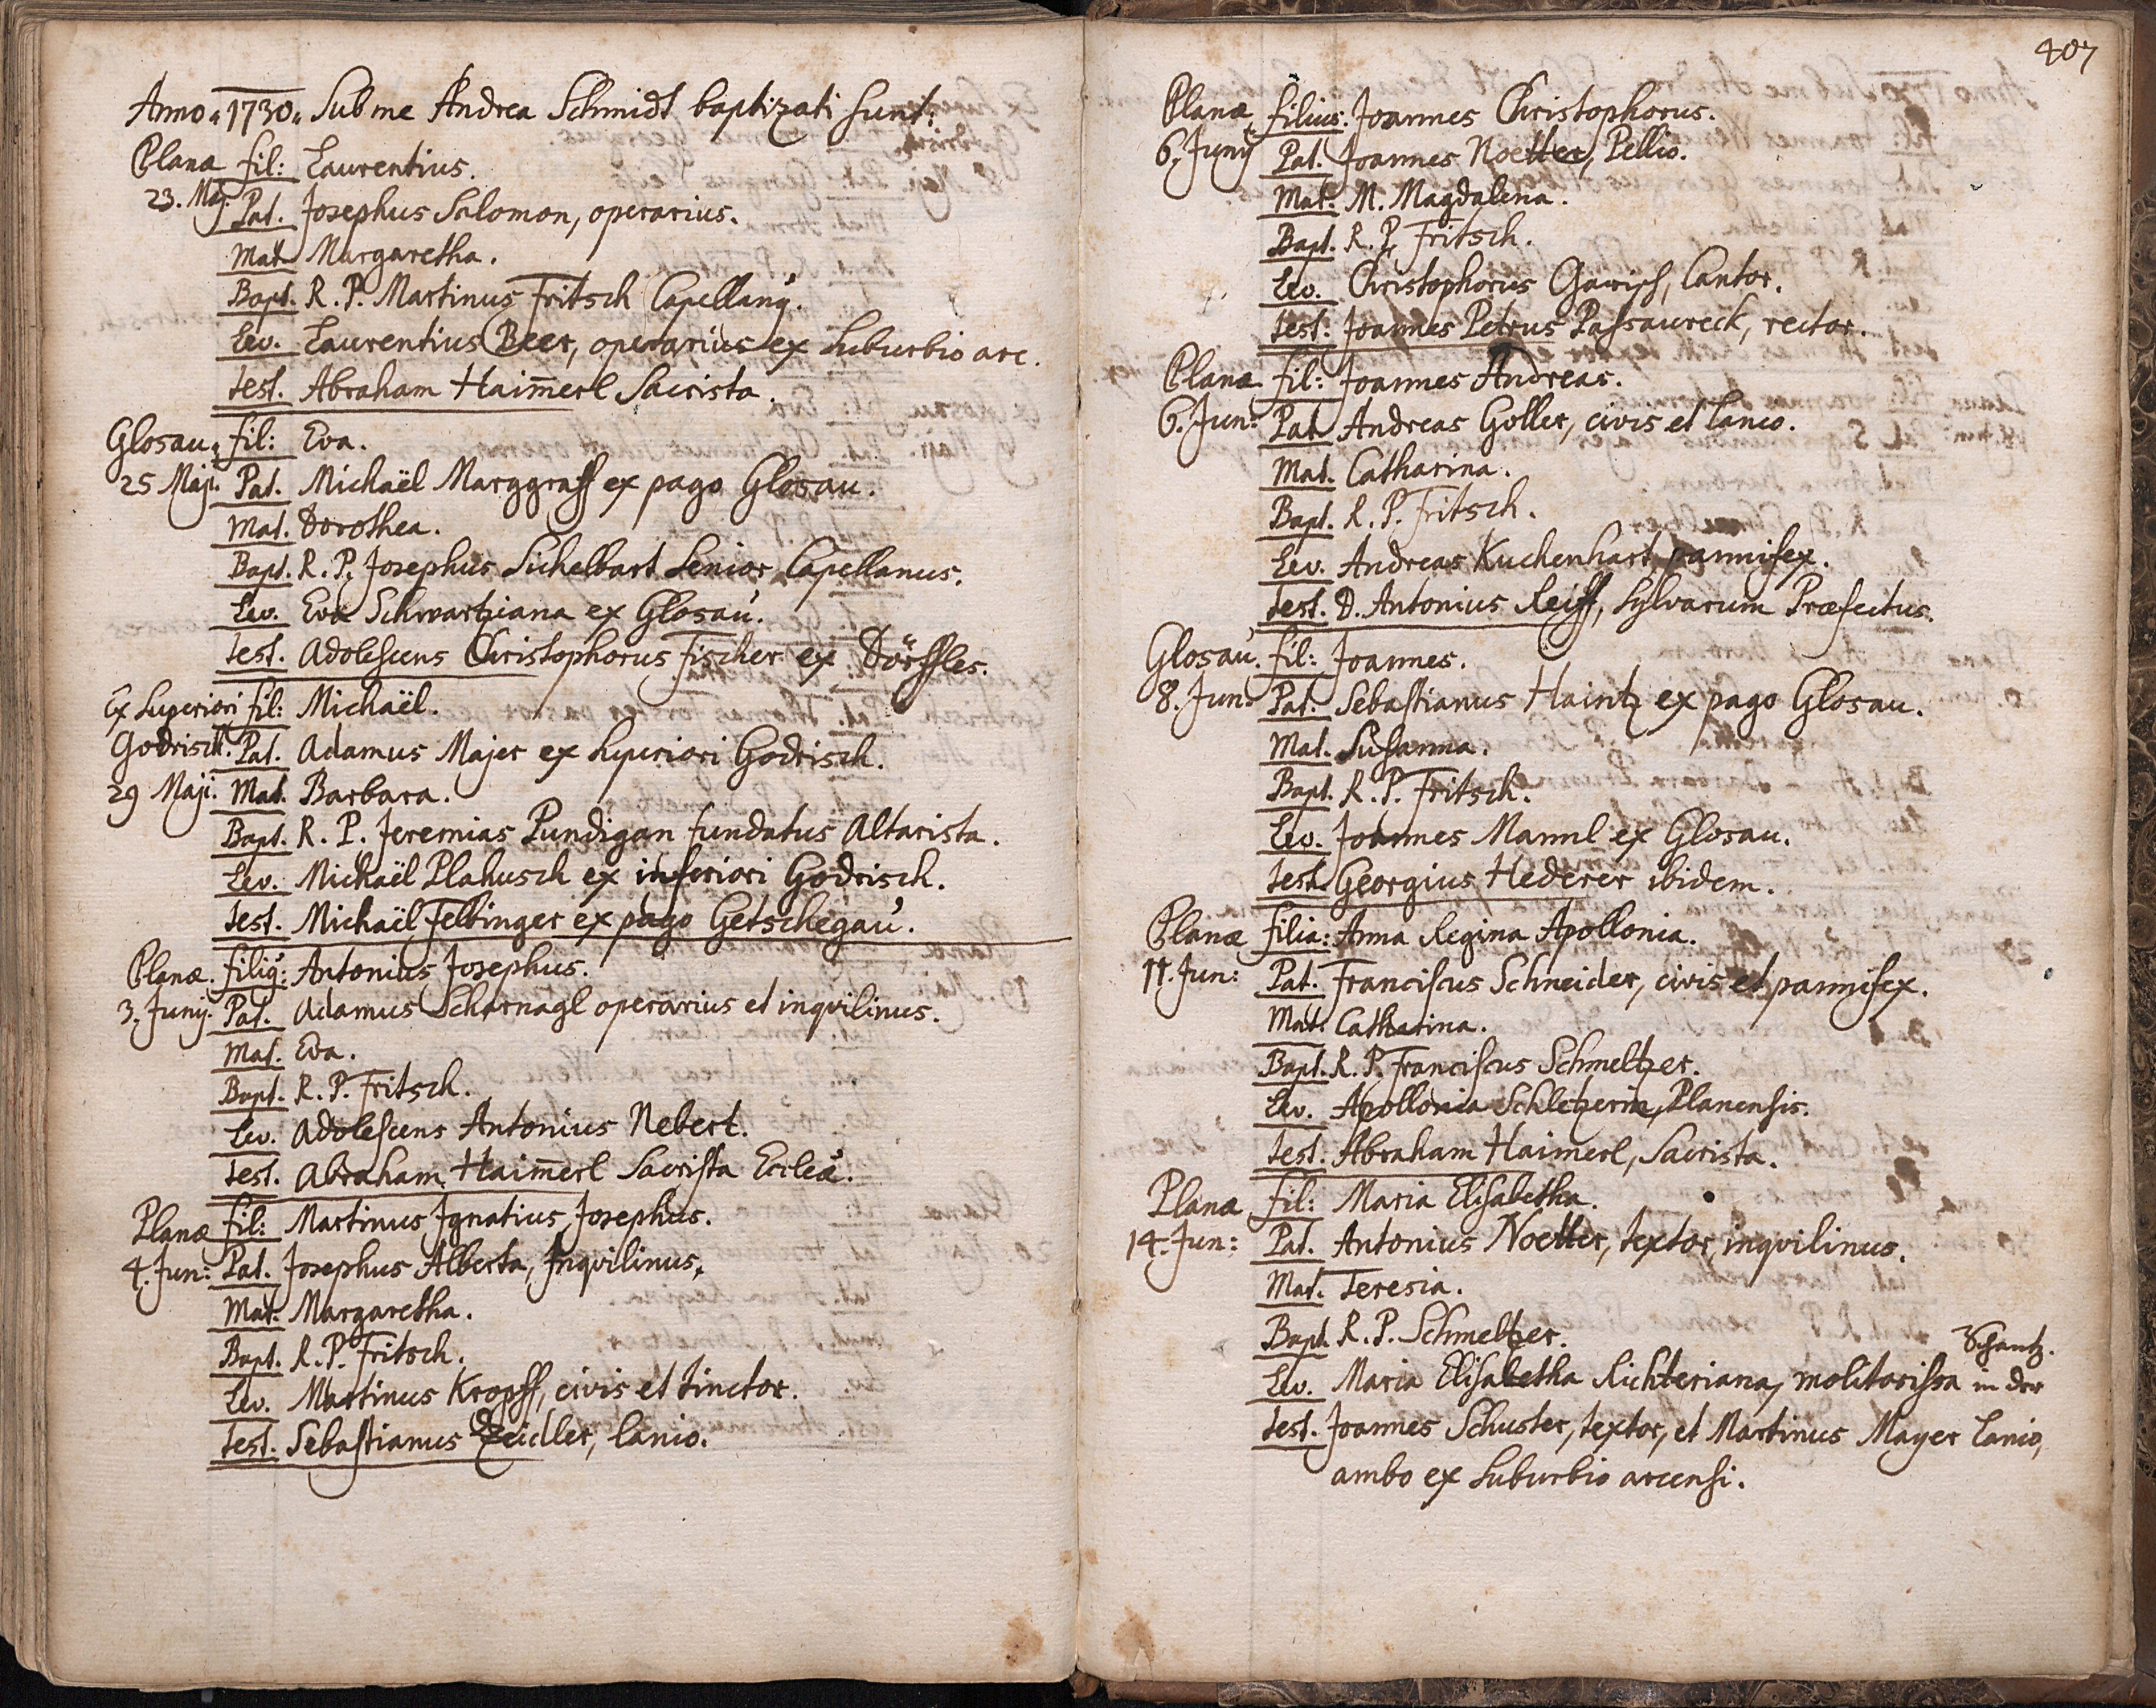 Anno 1730. Sub me Andrea Schmidt baptizati sunt:
Planæ fil: Laurentius.
23. Maj. Pat. Josephus Salomon, operarius.
Mat. Margaretha.
Bapt. R. P. Martinus Fritsch Capellang.
Lev. Laurentius Beer, operarius ex suburbio arc.
test. Abraham Haim̄erl Sacrista.
Glosau. fil: Eva.
25 Maji. Pat. Michaël Marggraff ex pago Glosau.
Mat. Dorothea.
Bapt. R. P. Josephus Sichelbart Senior Capellanus.
Lev. Eva Schwartziana ex Glosau.
test. Adolescens Christophorus Fischer ex Dörffles.
Ex Superiori fil: Michaël.
Godrisch. Pat. Adamus Majer ex superiori Godrisch.
29 Maji. Mat. Barbara.
Bapt. R. P. Jeremias Pundigan fundatus Altarista.
Lev. Michaël Plahusch ex inferiori Godrisch.
test. Michaël Felbinger ex pago Getschegau.
Planæ. filig: Antonius Josephus.
3. Junij. Pat. Adamus Scharnagl operarius et inqvilinus.
Mat. Eva.
Bapt. R. P. Fritsch.
Lev. Adolescens Antonius Nebert.
test. Abraham Haim̄erl Sacrista Eccleä.
Planæ fil: Martinus Ignatius Josephus.
4. Jun: Pat. Josephus Alberta, Inqvilinus.
Mat. Margaretha.
Bapt. R. P. Fritsch.
Lev. Martinus Kropff, civis et tinctor.
test. Sebastianus Zeidler, lanio.
407
Planæ filius: Joannes Christophorus.
6. Junij Pat. Joannes Noetter, Pellio.
Mat. M. Magdalena.
Bapt. R. P. Fritsch.
Lev. Christophorus Gawisch, Cantor.
test. Joannes Petrus Passaureck, rector.
Planæ fil: Joannes Andreas.
6. Jun: Pat. Andreas Goller, civis et lanio.
Mat. Catharina.
Bapt. R. P. Fritsch.
Lev. Andreas Kuchenhart, pannifex.
test. D. Antonius Reiff, Sylvarum Præfectus.
Glosau. fil: Joannes.
8. Jun: Pat. Sebastianus Haintz ex pago Glosau.
Mat. Susanna.
Bapt. R. P. Fritsch.
Lev. Joannes Mannl ex Glosau.
test. Georgius Hederer ibidem.
Planæ filia: Anna Regina Apollonia.
11. Jun: Pat. Franciscus Schneider, civis et pannifex.
Mat. Catharina.
Bapt. R. P. Franciscus Schmeltzer.
Lev. Apollonia Schletzerin, Planensis.
test. Abraham Haimerl, Sacrista.
Planæ fil: Maria Elisabetha.
14. Jun: Pat. Antonius Noetter, textor, inqvilinus.
Mat. Teresia.
Bapt. R. P. Schmeltzer.
Schantz.
Lev. Maria Elisabetha Richteriana, molitorissa in der
test. Joannes Schuster, textor, et Martinus Mayer Lanio,
ambo ex suburbio arcensi.